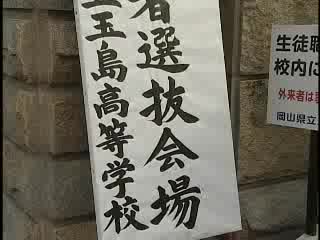 者選抜会場
玉島高等学校
生徒職
校内に
外来者は
岡山県立